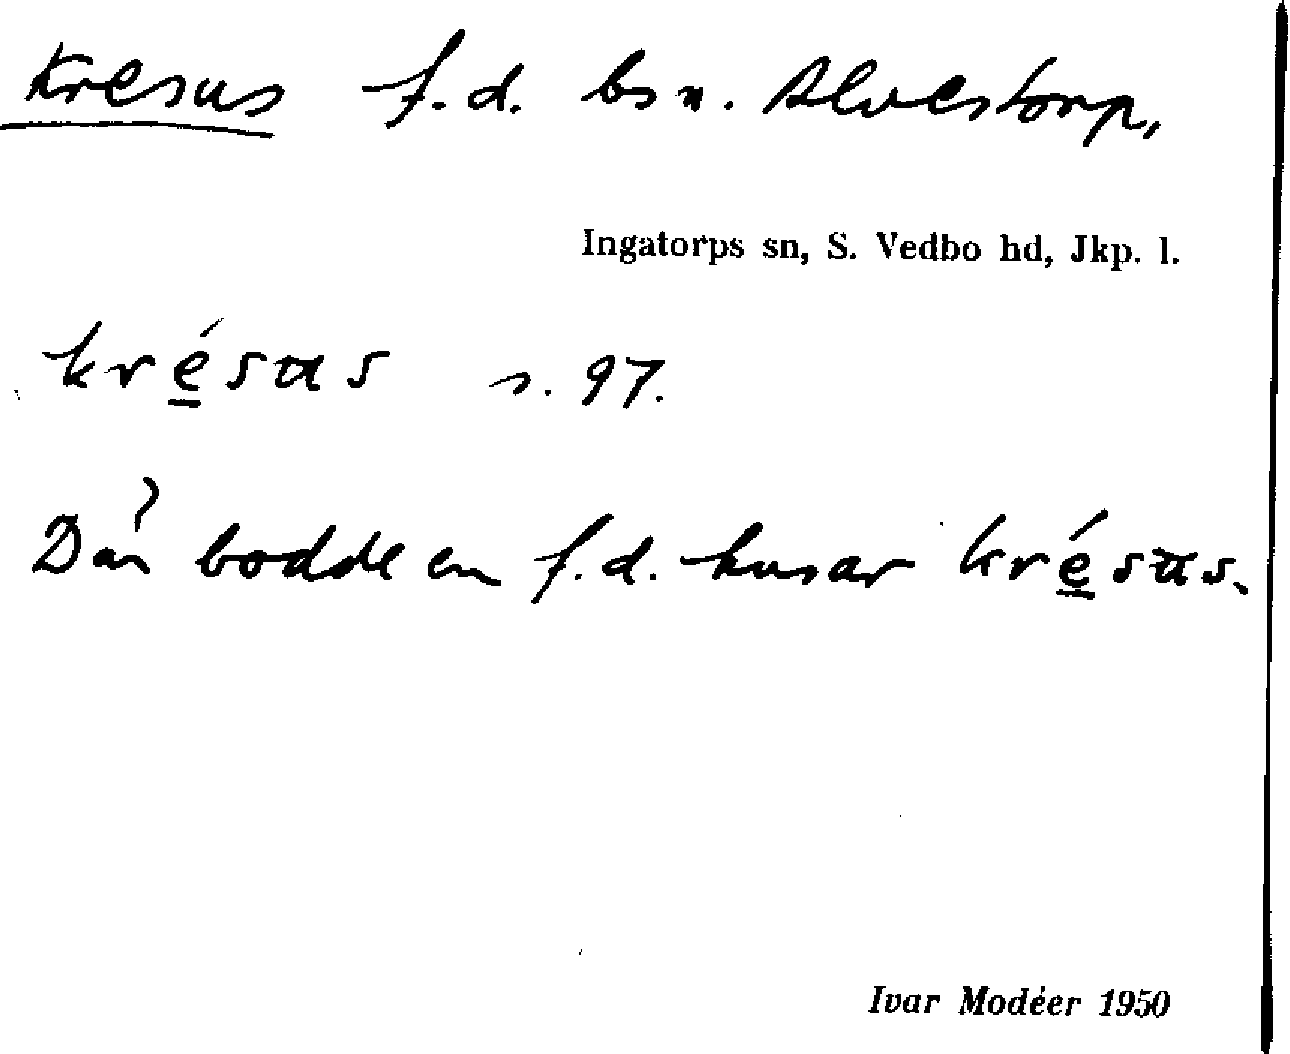 Kresus f.d. bsn. Alvestorp,
Ingatorps sn, S. Vedbo hd, Jkp. l.
krésas s. 97.
Där bodde en f.d. husar krésas.
Ivar Modéer 1950